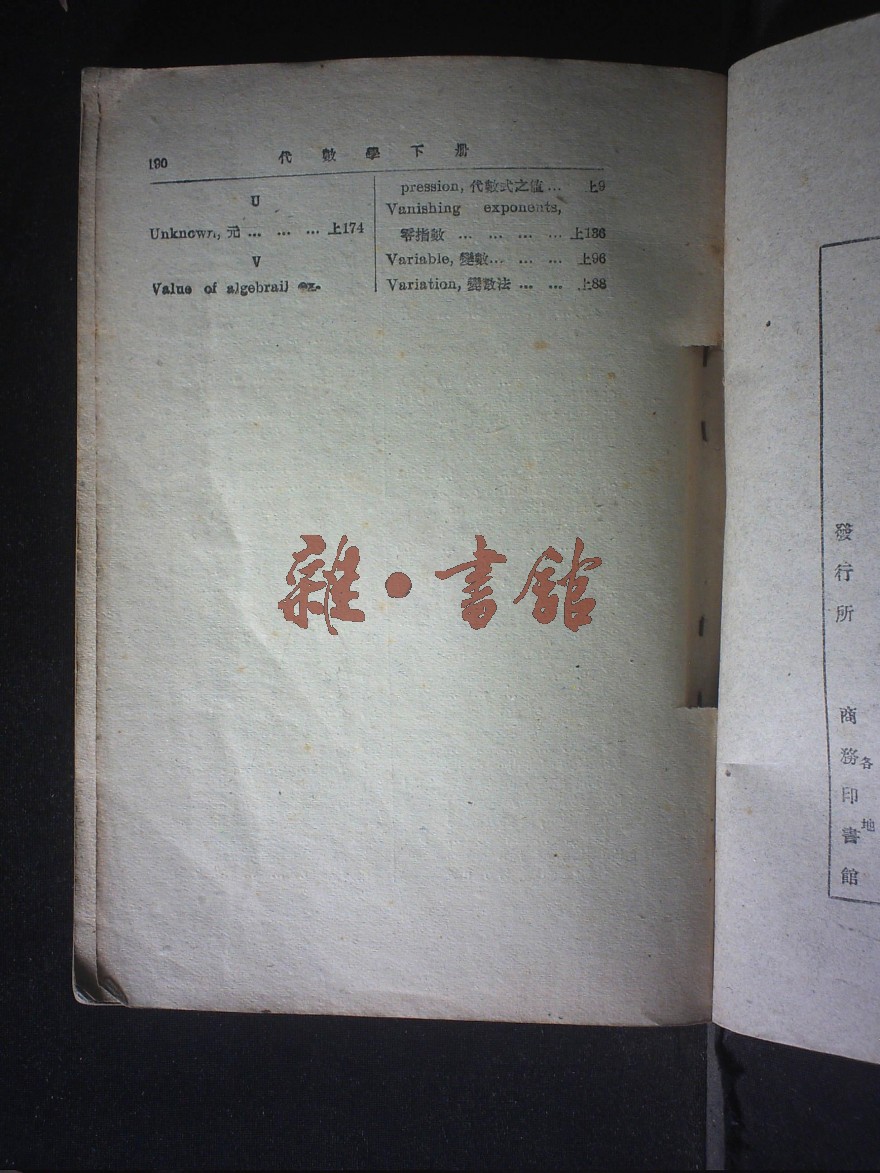 190
代數學下册
U
Unknown, 元 ... ... ... 上174
V
Value of algebrail ex-
pression, 代數式之值 ... 上9
Vanishing exponents,
零指數 ... ... ... ... 上136
Variable, 變數... ... ... 上96
Variation, 變數法 ... ... 上88
雜·書館
發行所
商務印書館
各地